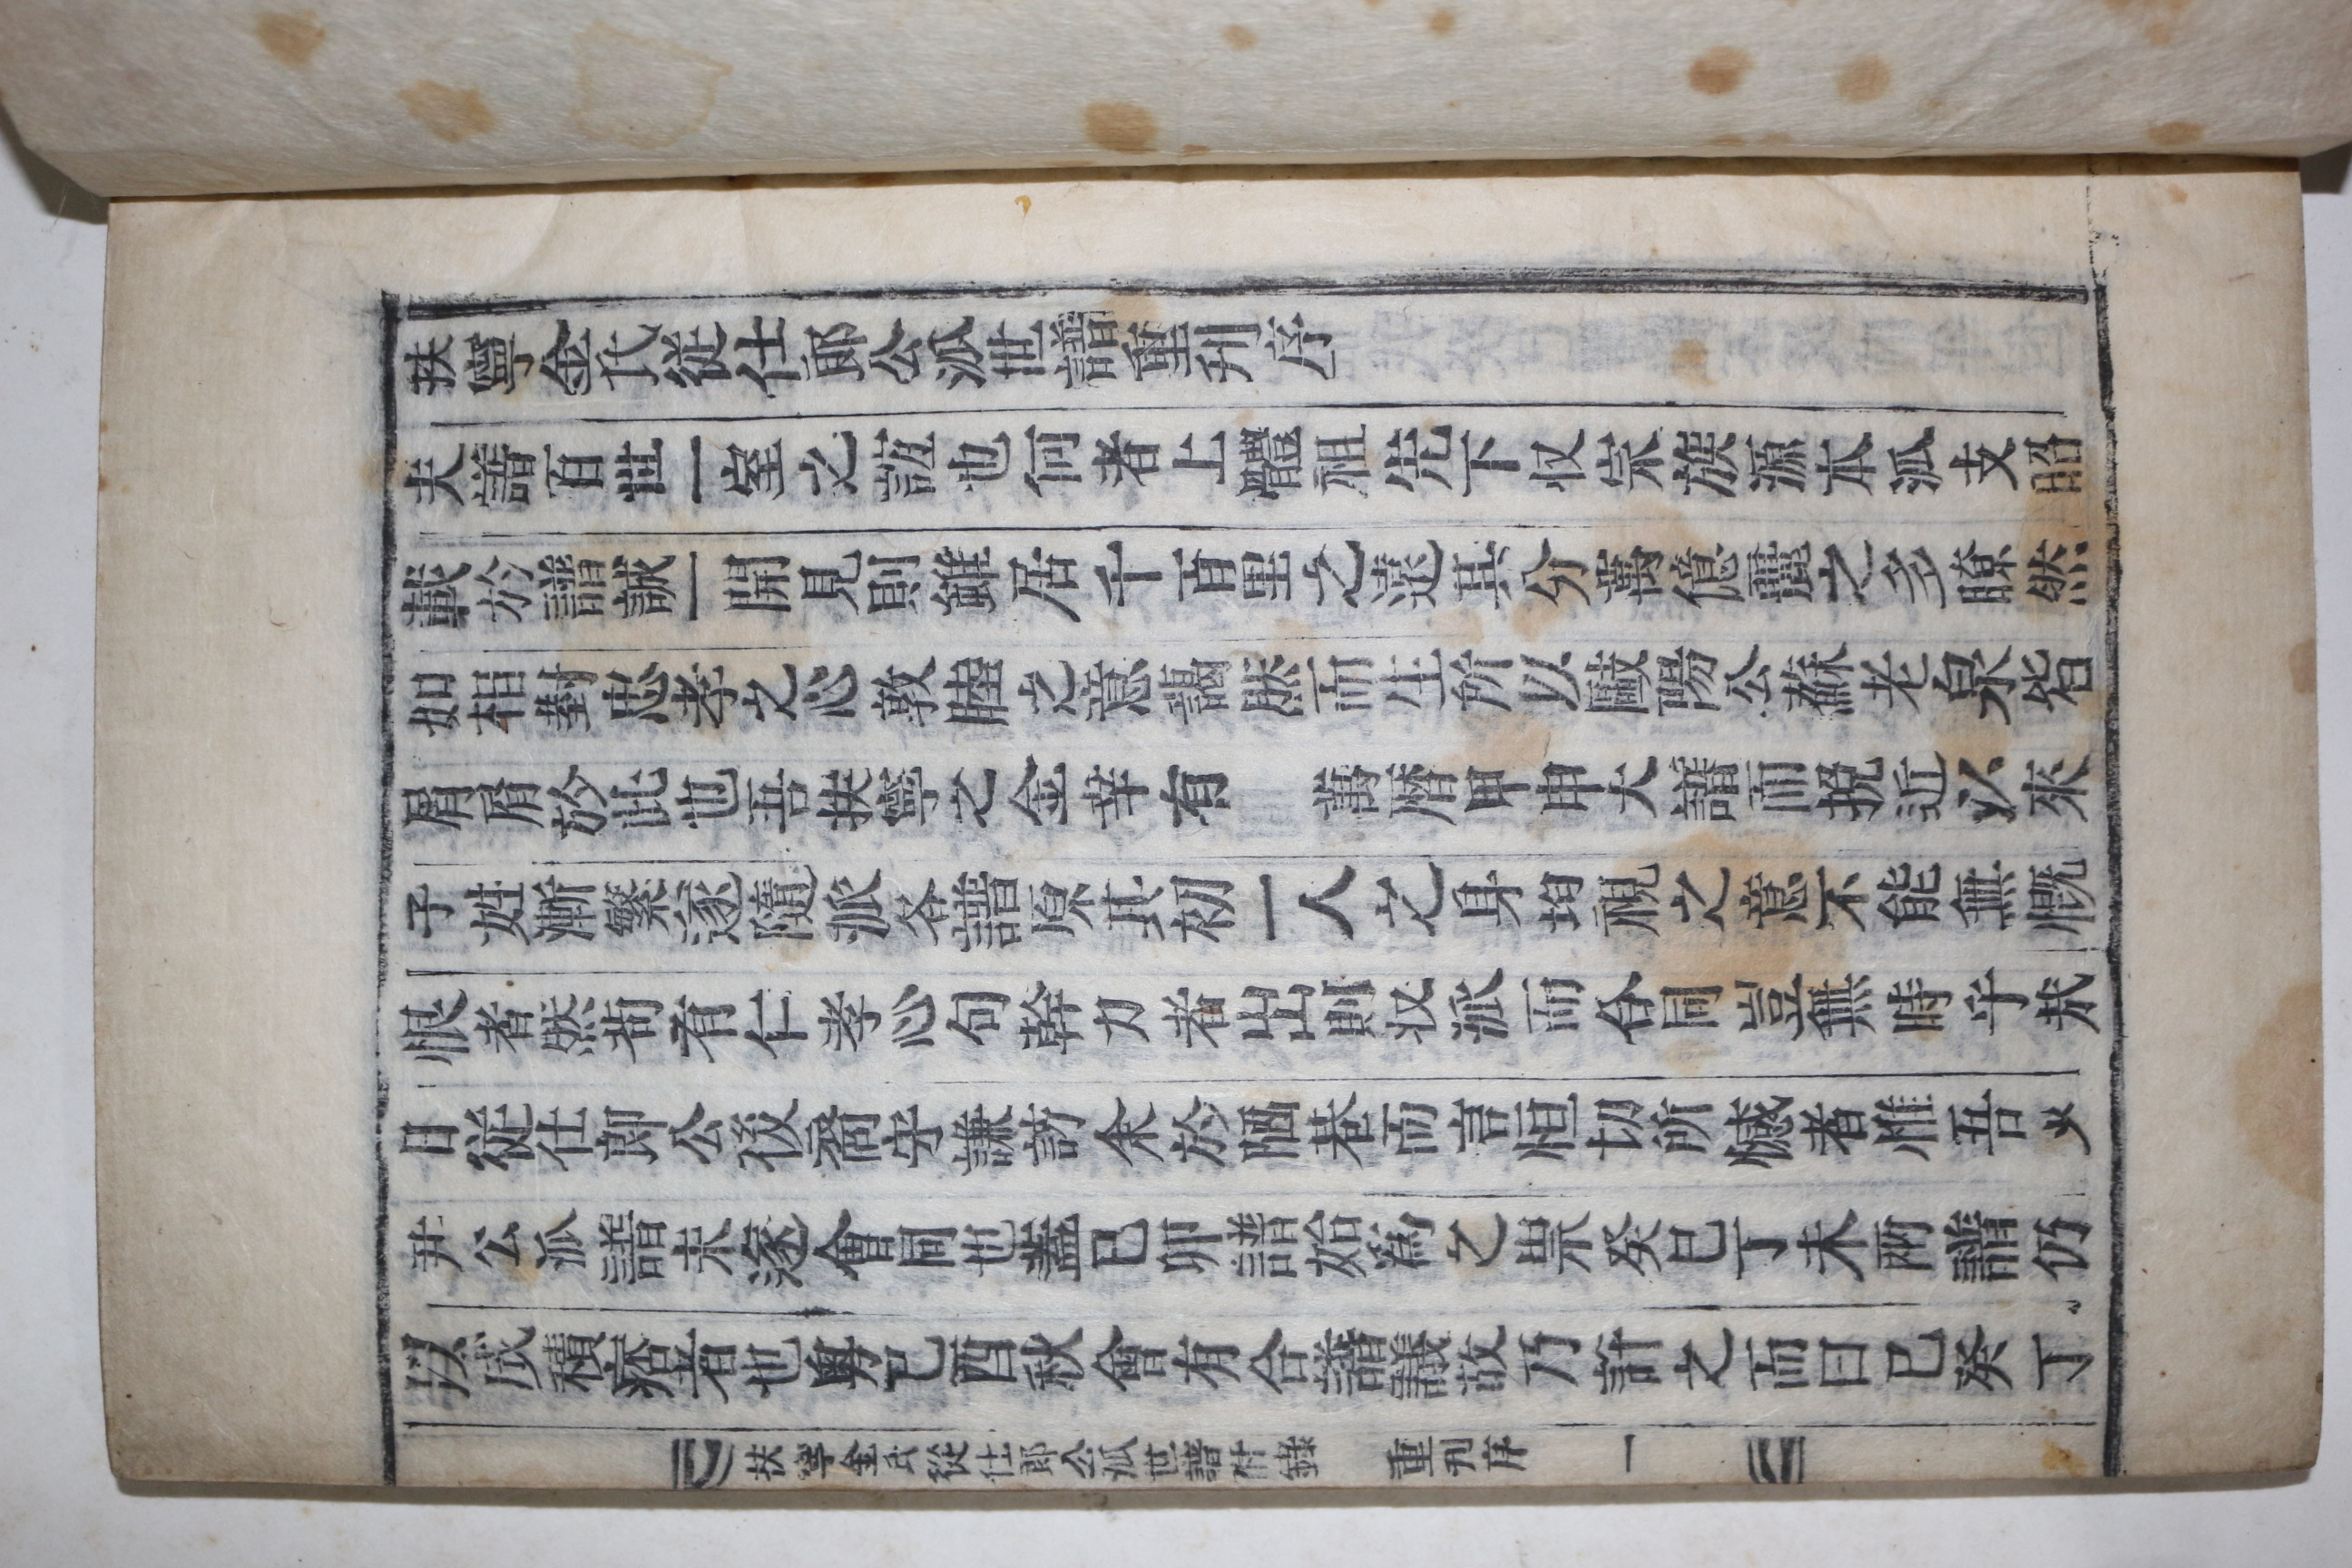 扶寧金氏從仕郞公派世譜重刊序
夫譜百世一室之誼也何者上軆祖先下収宗族源本派支昭
載於譜誠一開見則雖居千百里之遠其分萬億麗之多瞭然
如相對忠孝之心敦睦之意藹然而生所以歐陽公蘇老泉皆
屑屑於此也吾扶寧之金幸有　萬曆甲申大譜而挽近以來
子姓漸繁遂隨派各譜原其初一人之身均視之意不能無慨
恨者然苟有仁孝心句幹力者出則収派而合同豈無時乎哉
日從仕郞公後裔守謙訪余於陋巷而言恒切所憾者惟吾少
尹公派譜未遂會同也蓋己卯譜始爲之祟癸巳丁未兩譜仍
以成積痞者也粤己酉秋會有合譜議故乃許之而曰己癸丁
扶寧金氏從仕郞公派世譜附錄　重刊序　一